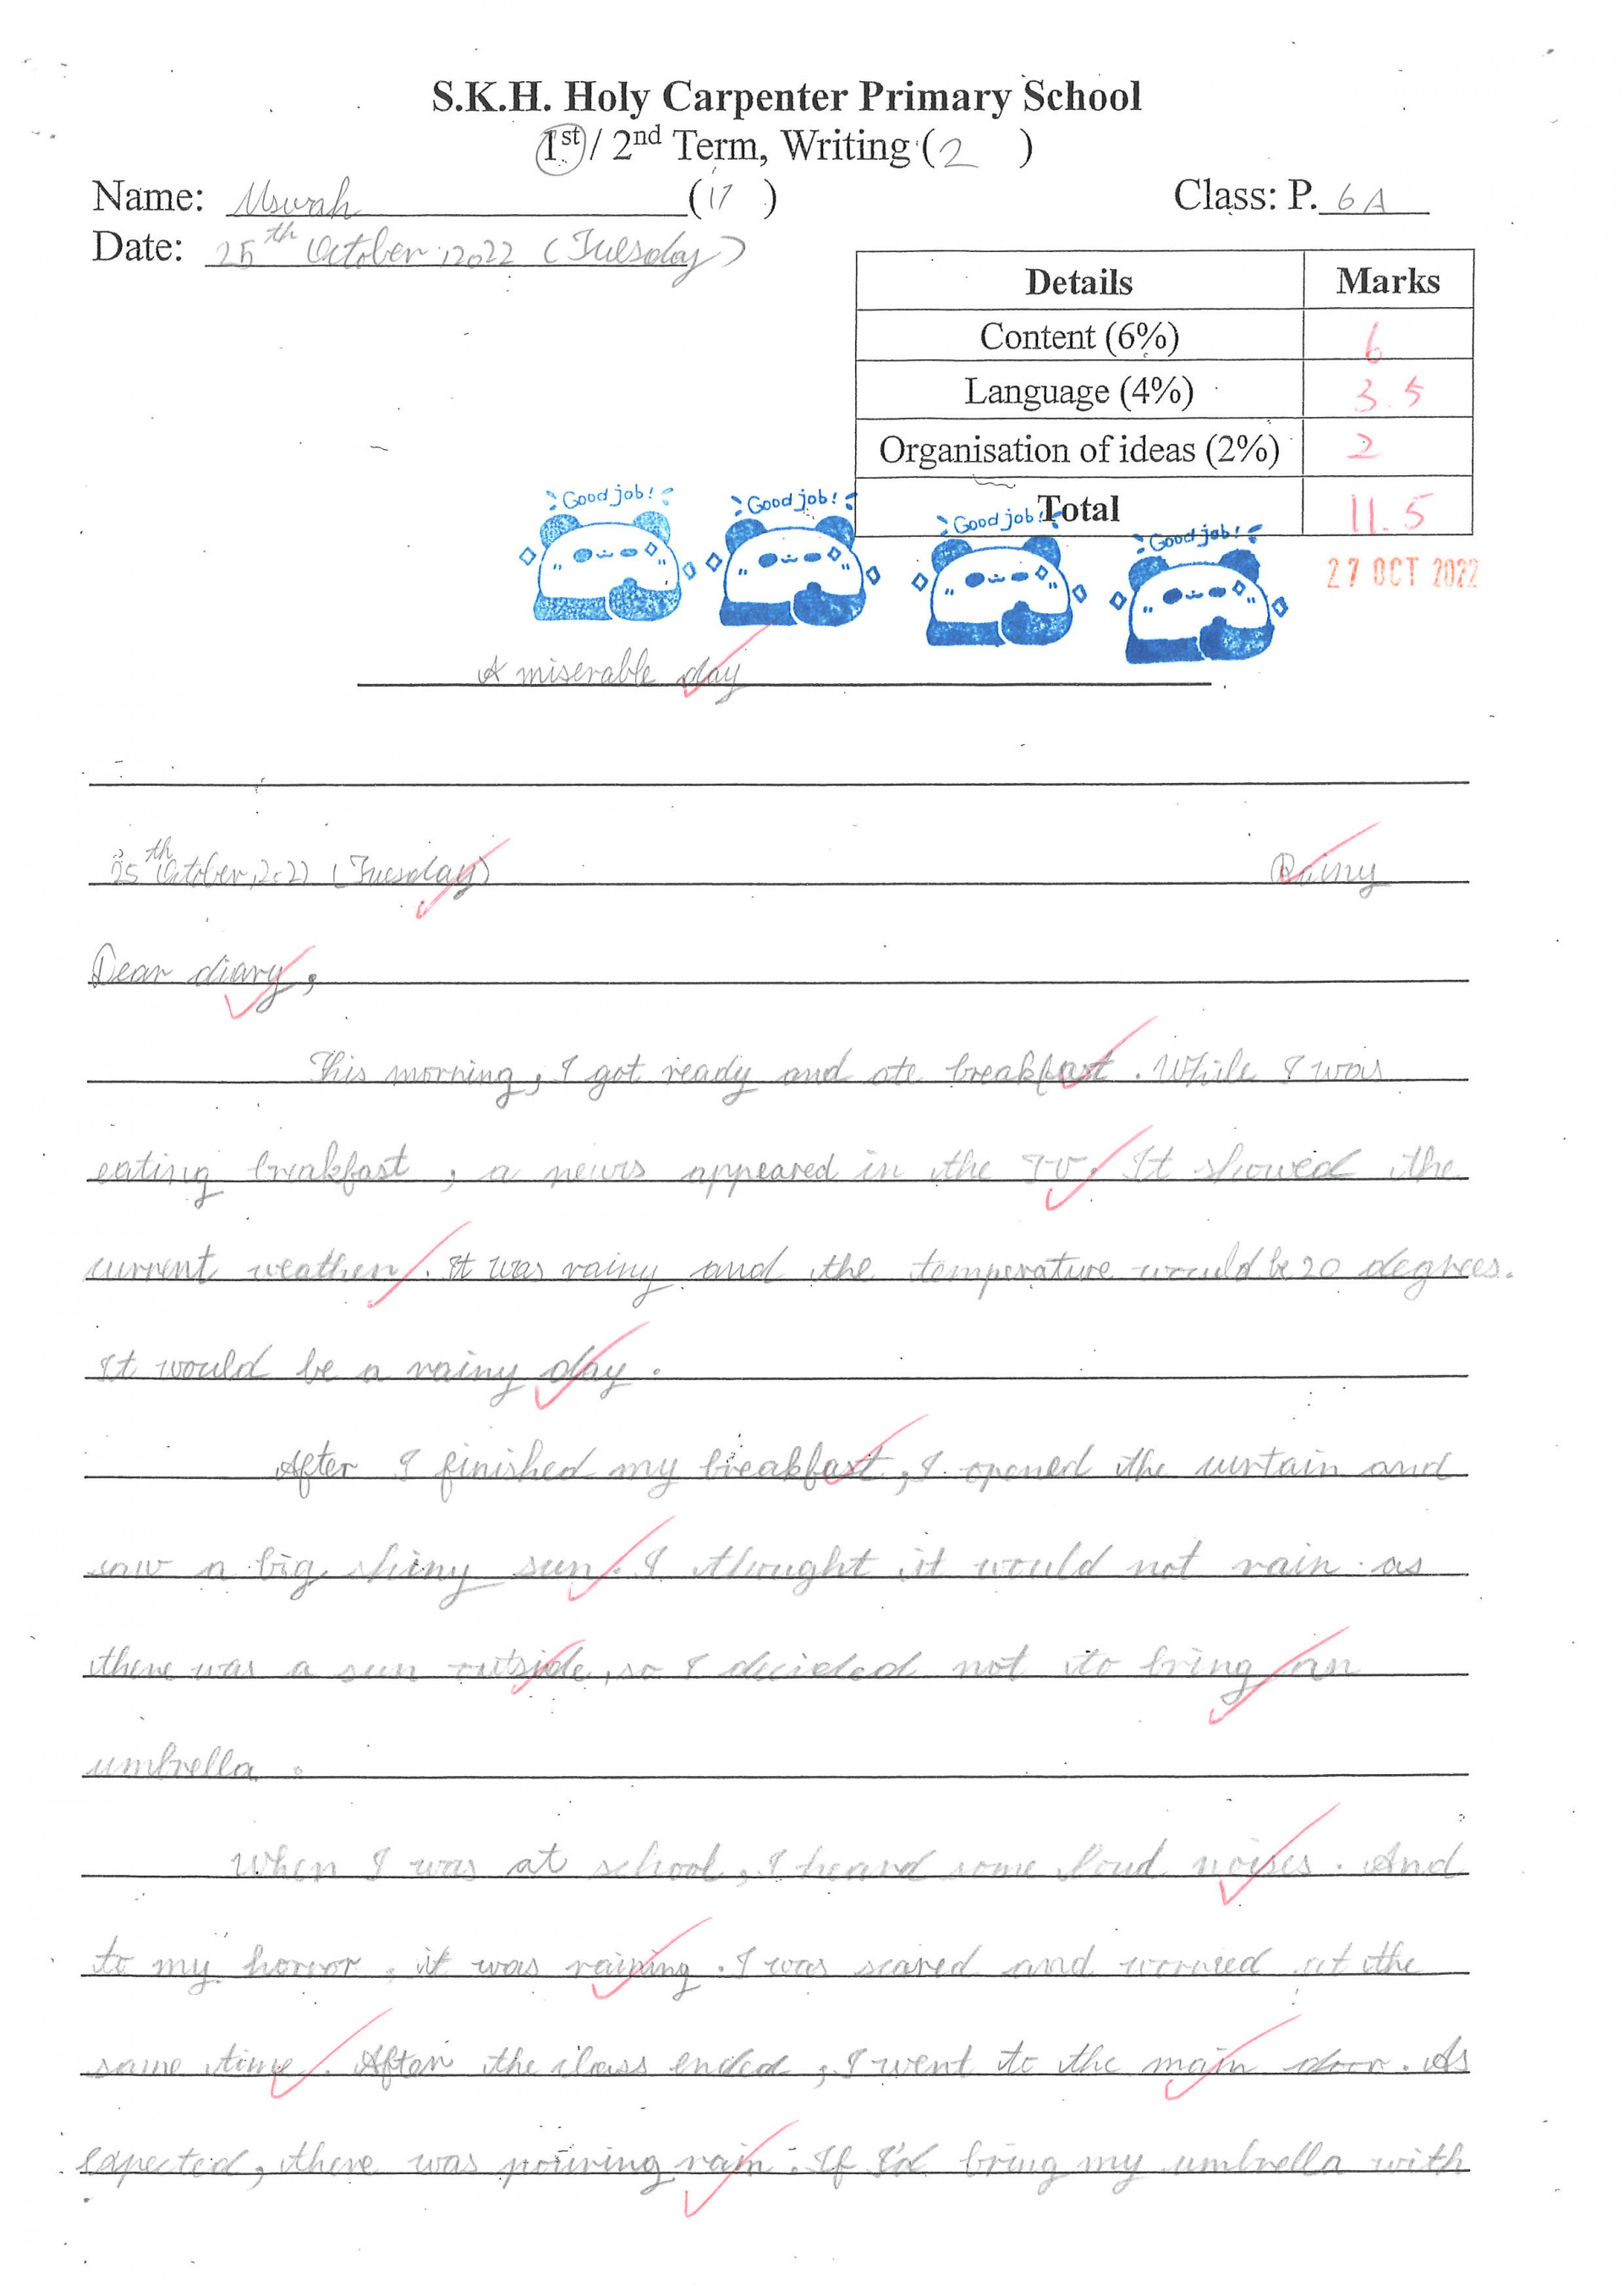 S.K.H. Holy Carpenter Primary School
1st / 2nd Term, Writing ( 2 )
Name: Uswah (17) Class: P. 6A
Date: 25th October, 2022 (Tuesday)
Details Marks
Content (6%) 6
Language (4%) 3.5
Organisation of ideas (2%) 2
Total 11.5
Good job! Good job! Good job! Good job!
27 OCT 2022
A miserable day
25th October, 2022 (Tuesday) Rainy
Dear diary,
This morning, I got ready and ate breakfast. While I was
eating breakfast, a news appeared in the TV. It showed the
current weather. It was rainy and the temperature would be 20 degrees.
It would be a rainy day.
After I finished my breakfast, I opened the curtain and
saw a big shiny sun. I thought it would not rain as
there was a sun outside, so I decided not to bring an
umbrella.
When I was at school, I heard some loud noises. And
to my horror, it was raining. I was scared and worried at the
same time. After the class ended, I went to the main door. As
expected, there was pouring rain. If I'd bring my umbrella with